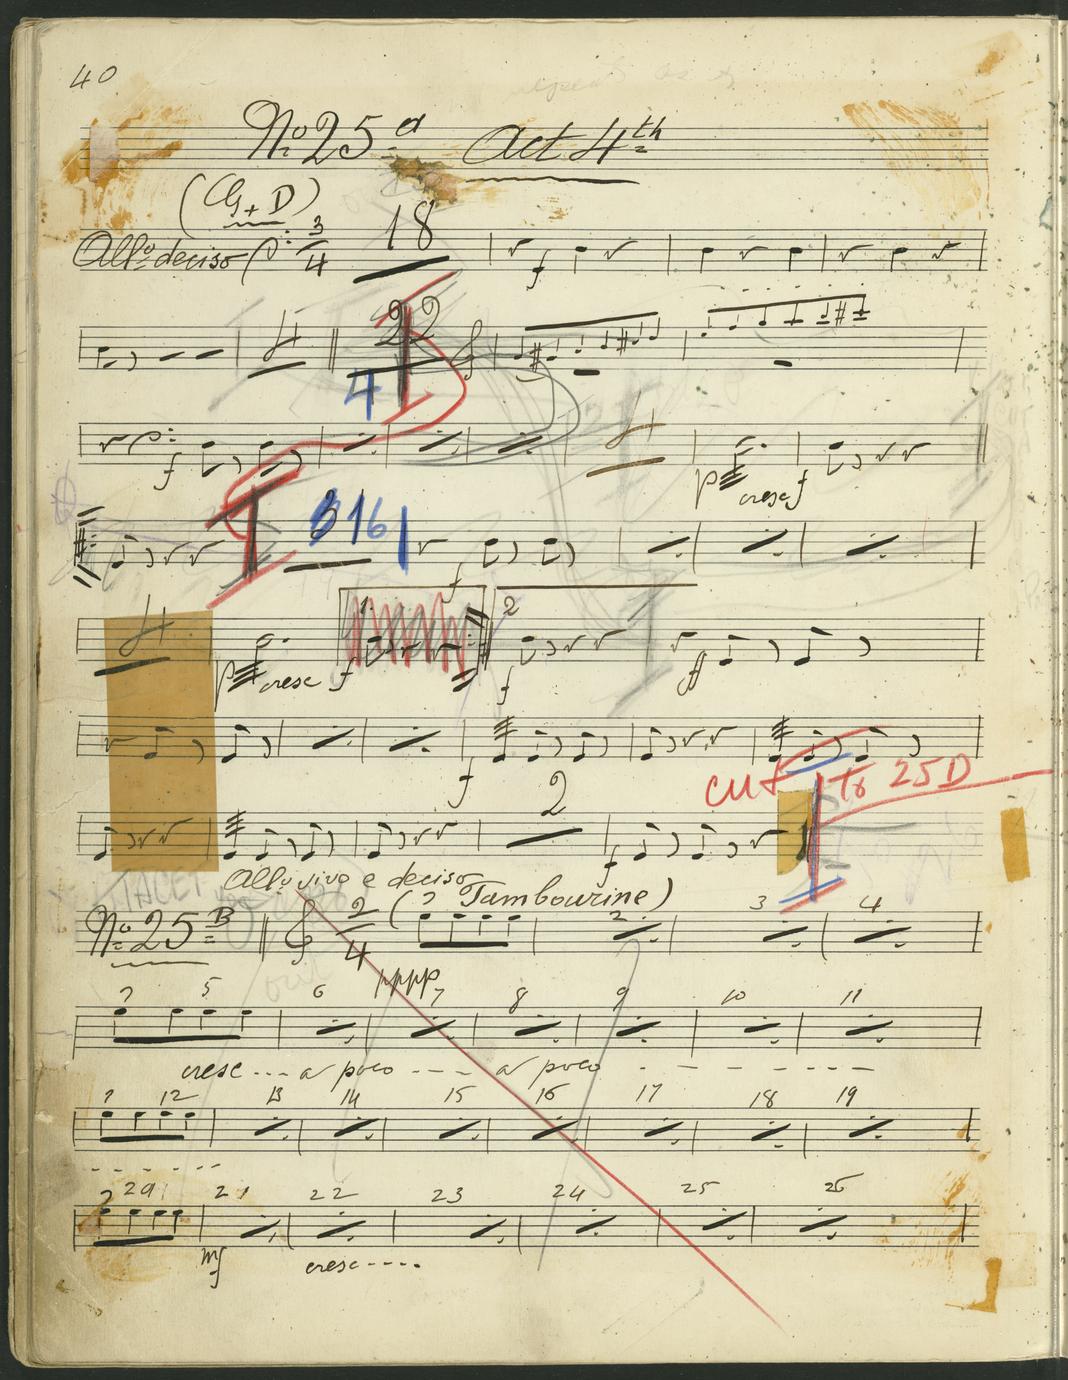 40
No 25 a Act 4th
(G + D)
Allo deciso 3 4 18
4 22
4
f 4 p cresc f
3 16 f
4 p cresc f 1. f 2 f ff
f
cut To 25 D
2 f
TACET Allo vivo e deciso
No 25 B 2 4 (Tambourine) 2 3 4
pppp
5 6 7 8 9 10 11
cresc --- a poco --- a poco - - - - - - -
12 13 14 15 16 17 18 19
20 21 22 23 24 25 26
mf cresc ----